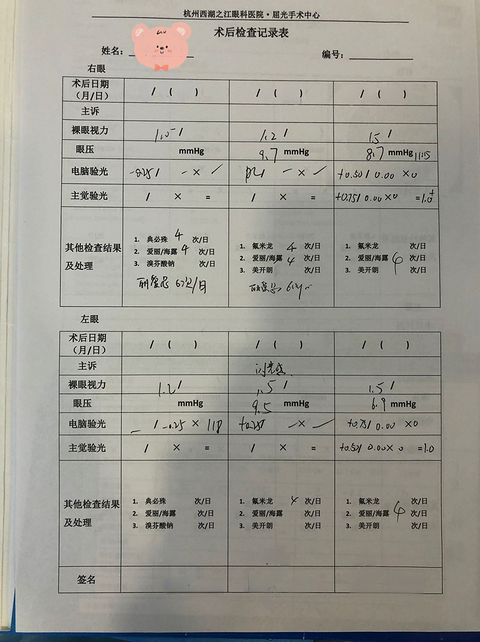 杭州西湖之江眼科医院·屈光手术中心
术后检查记录表
姓名： 编号：
右眼
术后日期（月/日） / （ ） / （ ） / （ ）
主诉
裸眼视力 1.0⁻/ 1.2/ 1.5/
眼压 mmHg 9.7 mmHg 8.7 mmHg 11:15
电脑验光 -0.25/ - × / PL/ - × / +0.50/ 0.00 ×0
主觉验光 / × = / × = +0.75/ 0.00 ×0 =1.0⁺
其他检查结果及处理
1. 典必殊 4 次/日 1. 氟米龙 4 次/日 1. 氟米龙 次/日
2. 爱丽/海露 4 次/日 2. 爱丽/海露 4 次/日 2. 爱丽/海露 4 次/日
3. 溴芬酸钠 次/日 3. 美开朗 次/日 3. 美开朗 次/日
6次/日
左眼
术后日期（月/日） / （ ） / （ ） / （ ）
主诉
裸眼视力 1.2/ 1.5/ 1.5/
眼压 mmHg 9.5 mmHg 6.9 mmHg
电脑验光 - / -0.25 × 118 +0.25/ - × / +0.75/ 0.00 ×0
主觉验光 / × = / × = +0.50/ 0.00 × 0 =1.0
其他检查结果及处理
1. 典必殊 次/日 1. 氟米龙 4 次/日 1. 氟米龙 次/日
2. 爱丽/海露 次/日 2. 爱丽/海露 次/日 2. 爱丽/海露 4 次/日
3. 溴芬酸钠 次/日 3. 美开朗 次/日 3. 美开朗 次/日
签名